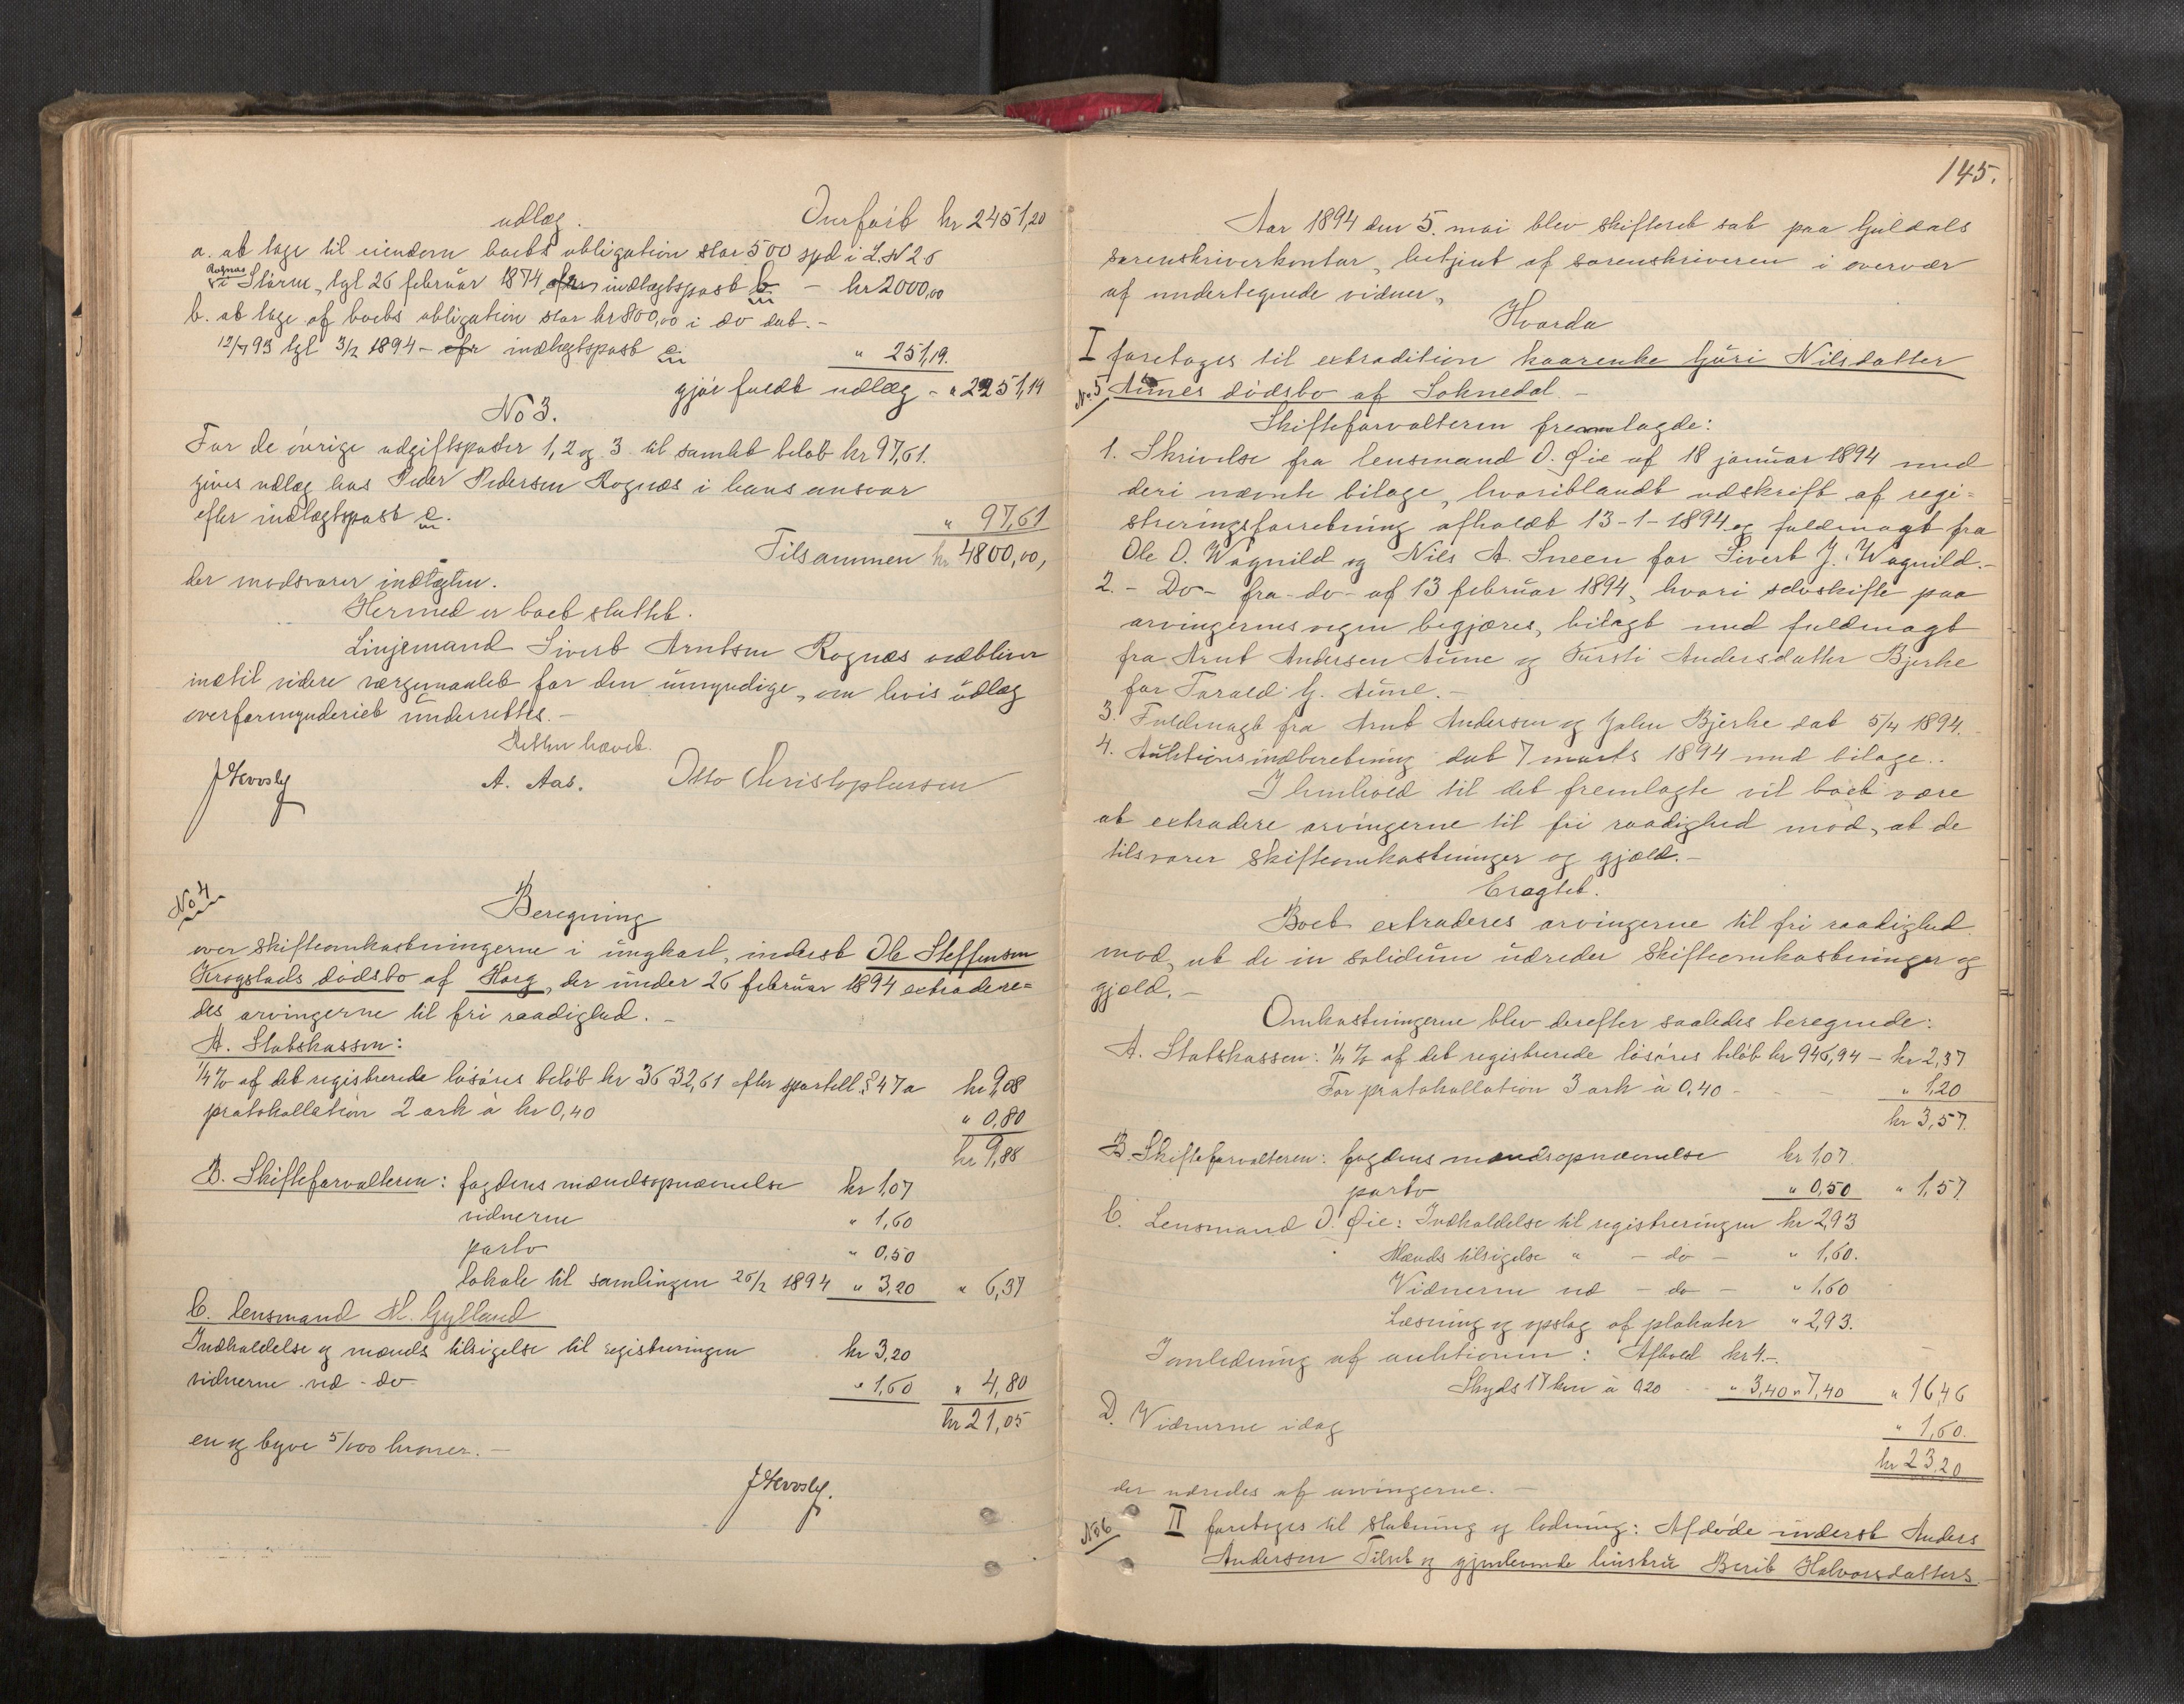 udlæg. Overført kr 2451,20
a. at tage til eiendom boets obligation stor 500 spd i L. N 26
Rognæs
i Støren, tgl 26 februar 1874 efter indtægtspost b - kr 2000,00
b. at tage af boets obligation stor kr 800,00 i do dat. -
12/7 93 tgl 3/2 1894 - efr indtægtspost " 251,19.
gjør fuldt udlæg - " 2251,19
No 3.
For de øvrige udgiftsposter 1, 2 og 3 til samlet beløb kr 97,61.
gives udlæg hos Peder Pedersen Rognæs i hans ansvar
efter indtægtspost c. " 97,61
Tilsammen kr 4800,00,
der modsvarer indtægten.
Hermed er boet sluttet.
Linjemand Sivert Arntsen Rognæs vedbliver
indtil videre værgemaalet for den umyndige, om hvis udlæg
overformynderiet underrettes. -
Retten hævet.
A. Aas. Otto Christophersen
No 4
Beregning
over skifteomkostningerne i ungkarl, inderst Ole Steffensen
Krogstads dødsbo af Horg, der under 26 februar 1894 extradere=
des arvingerne til fri raadighed. -
A. Statskassen:
1/4 % af det registrerede løsøres beløb kr 3632,61 efter sportell. § 47 a kr 9,08
protokollation 2 ark à kr 0,40 " 0,80
kr 9,88
B. Skifteforvalteren: fogdens mændsopnævnelse kr 1,07
vidnerne " 1,60
porto " 0,50
lokale til samlingen 26/2 1894 " 3,20 " 6,37
C. lensmand M. Gylland
Indkaldelse og mænds tilsigelse til registreringen kr 3,20
vidnerne ved - do " 1,60 " 4,80
kr 21,05
en og tyve 5/100 kroner. -
145.
Aar 1894 den 5. mai blev skifteret sat paa Guldals
sorenskriverkontor, betjent af sorenskriveren i overvær
af undertegnede vidner,
Hvorda
I foretoges til extradition kaarenke Guri Nilsdatter
No 5 Aunes dødsbo af Soknedal. -
Skifteforvalteren fremlagde:
1. Skrivelse fra lensmand O. Øie af 18 januar 1894 med
deri nævnte bilage, hvoriblandt udskrift af regi=
streringsforretning afholdt 13-1-1894 og fuldmagt fra
Ole O. Wagnild og Nils A. Sneen for Sivert J. Wagnild. -
2. - Do - fra - do - af 13 februar 1894, hvori selvskifte paa
arvingernes vegne begjæres, bilagt med fuldmagt
fra Arnt Andersen Aune og Kirsti Andersdatter Bjerke
for Torald G. Aune. -
3. Fuldmagt fra Arnt Andersen og John Bjerke dat 5/4 1894.
4. Auktionsindberetning dat 7 marts 1894 med bilage.
I henhold til det fremlagte vil boet være
at extradere arvingerne til fri raadighed mod, at de
tilsvarer skifteomkostninger og gjæld. -
Eragtet.
Boet extraderes arvingerne til fri raadighed
mod, at de in solidum udreder skifteomkostninger og
gjæld. -
Omkostningerne blev derefter saaledes beregnede:
A. Statskassen: 1/4 % af det registrerede løsøres beløb kr 946,94 - kr 2,37
For protokollation 3 ark à 0,40 - " 1,20
kr 3,57.
B. Skifteforvalteren: fogdens mændsopnævnelse kr 1,07
porto " 0,50 " 1,57
C. Lensmand O. Øie: Indkaldelse til registreringen kr 2,93
Mænds tilsigelse " - do - " 1,60.
Vidnerne ved - do - " 1,60
Læsning og opslag af plakater " 2,93.
I anledning af auktionen: Afhold kr 4.-
Skyds 17 km à 0,20 " 3,40 " 7,40 " 16,46
D. Vidnerne idag " 1,60.
kr 23,20
der udredes af arvingerne. -
No 6 II foretoges til slutning og lodning: Afdøde inderst Anders
Andersen og gjenlevende hustru Berit Halvorsdatters